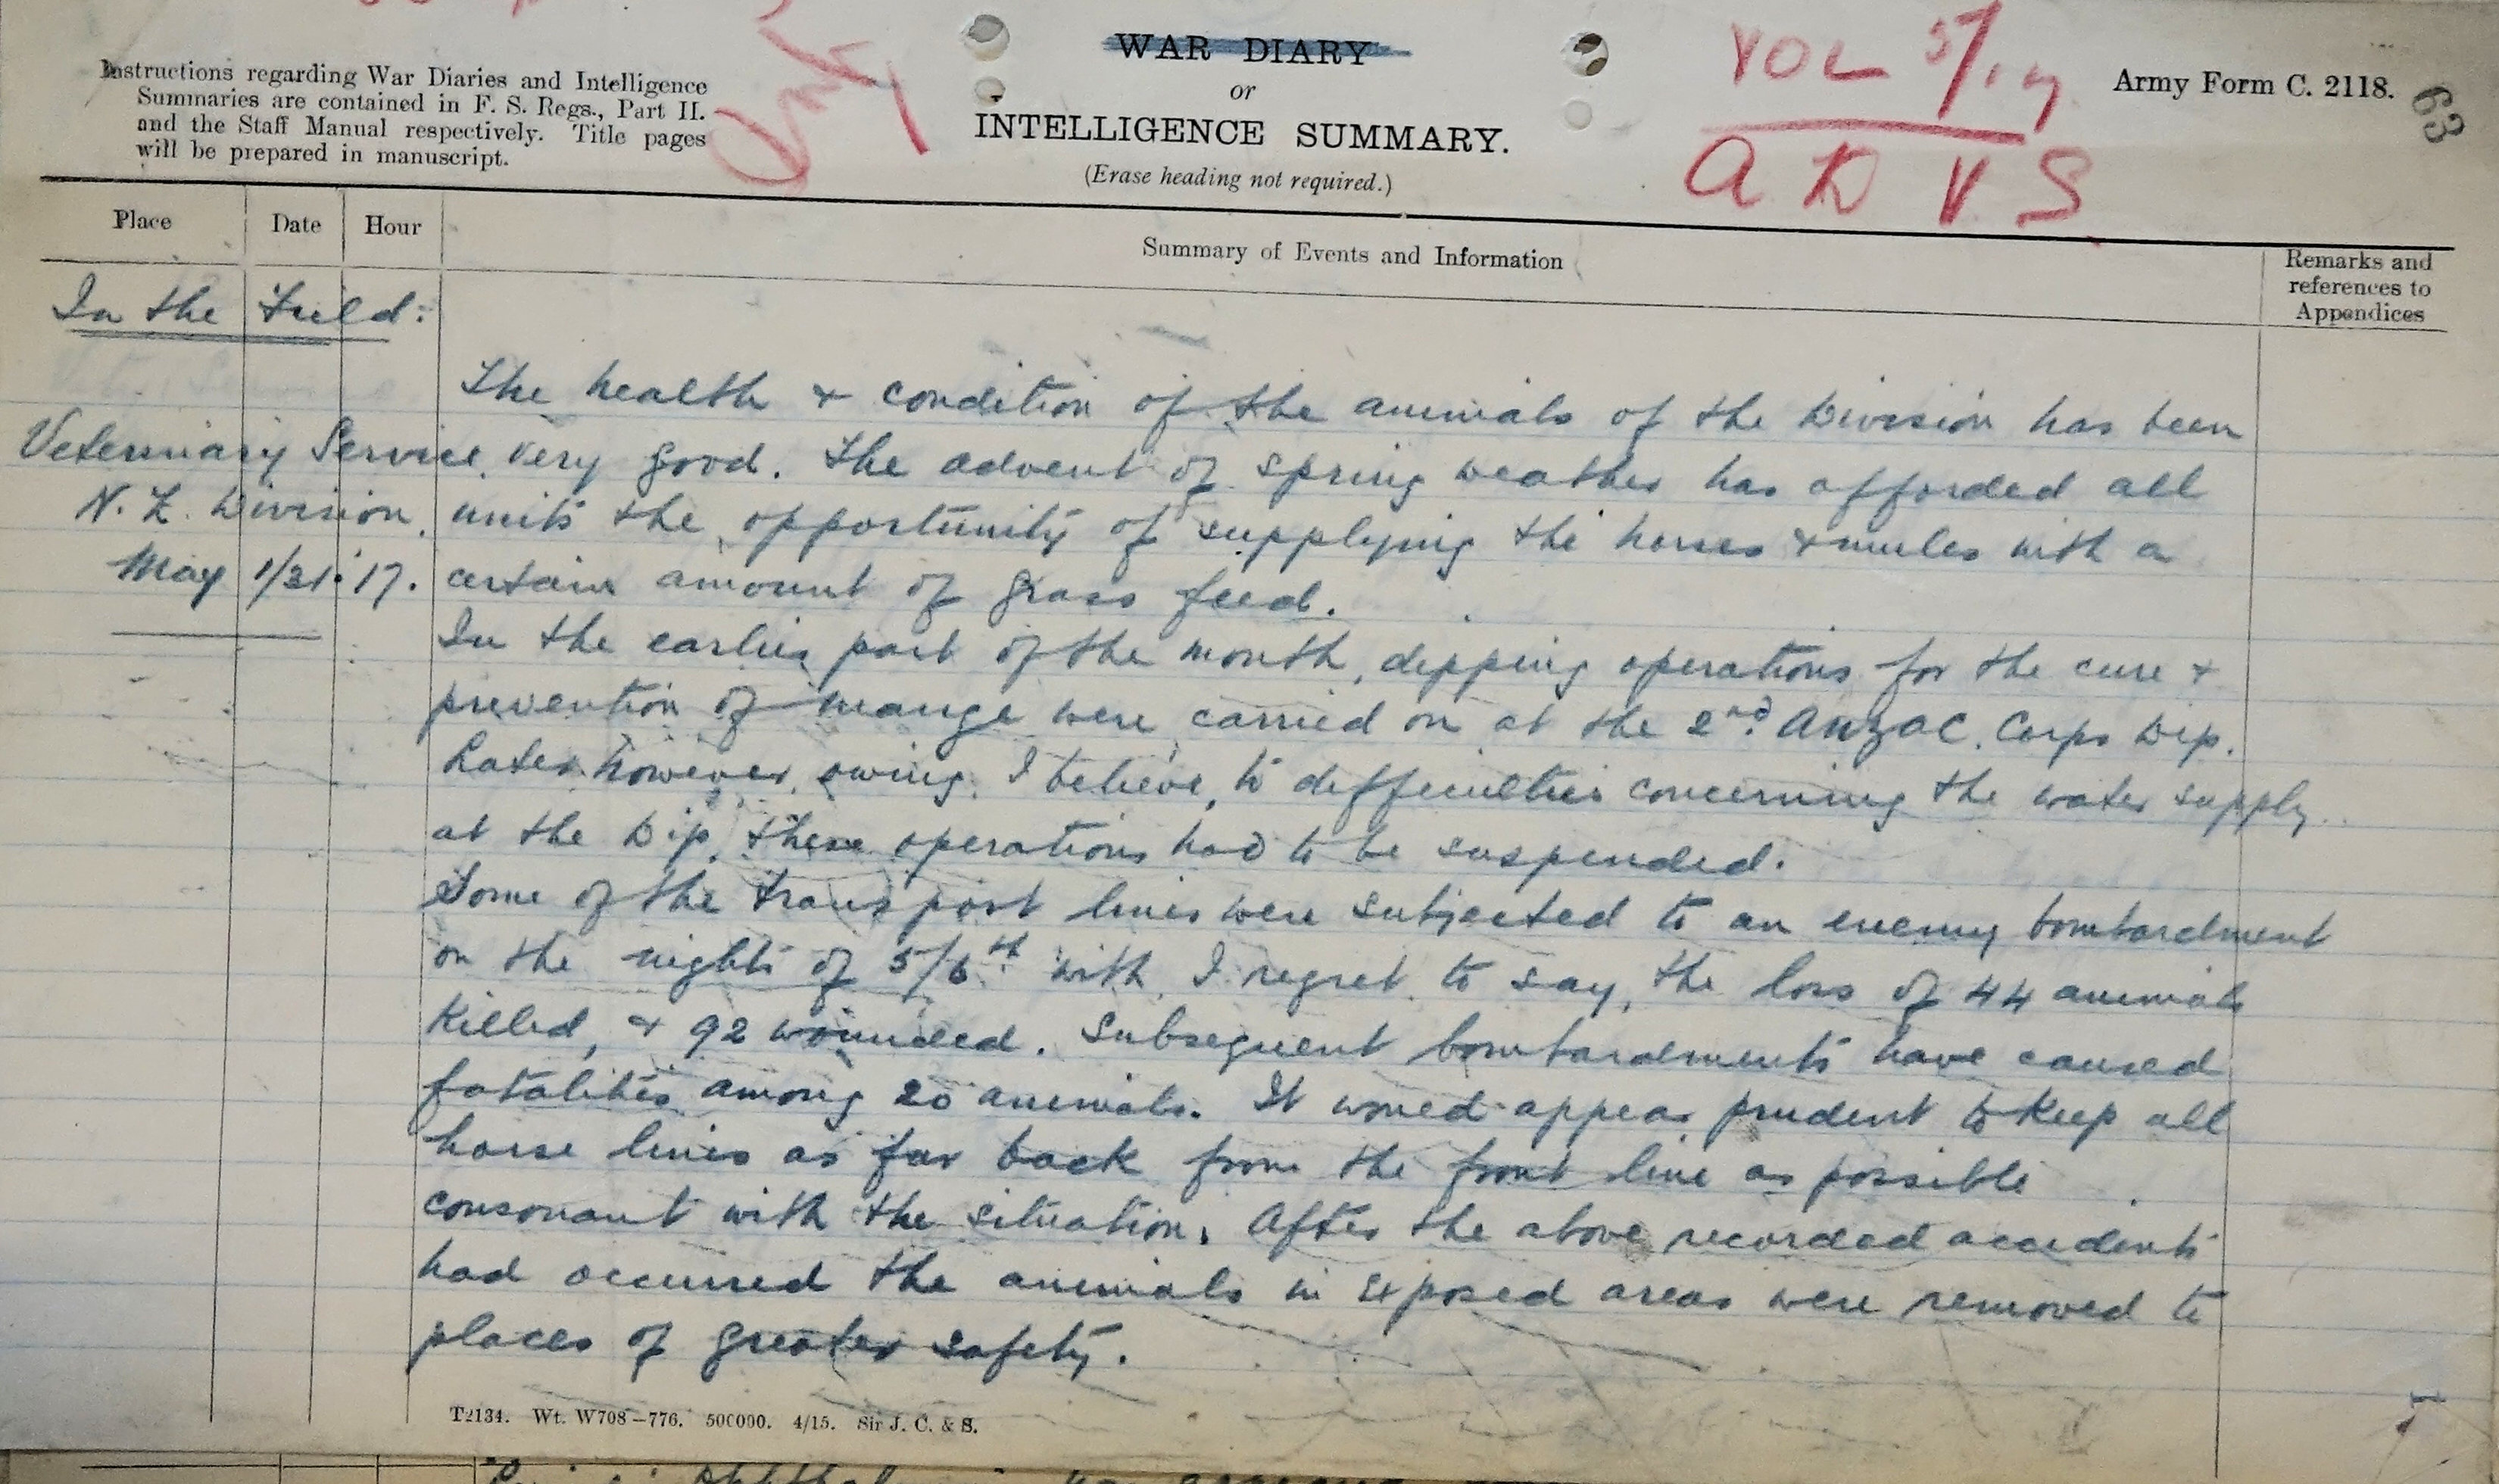 Instructions regarding War Diaries and Intelligence
Summaries are contained in F. S. Regs., Part II.
and the Staff Manual respectively. Title pages
will be prepared in manuscript.
WAR DIARY
or
INTELLIGENCE SUMMARY.
(Erase heading not required.)
VOL 5/17
A D V S
Army Form C. 2118.
63
Place
Date
Hour
Summary of Events and Information
Remarks and
references to
Appendices
In the Field:
Veterinary Service.
N. Z. Division.
May 1/31·'17.
The health & condition of the animals of the Division has been
very good. The advent of spring weather has afforded all
units the opportunity of supplying the horses & mules with a
certain amount of grass feed.
In the earlier part of the month, dipping operations for the cure &
prevention of mange were carried on at the 2nd. Anzac. Corps Dip.
Later, however, owing, I believe, to difficulties concerning the water supply
at the Dip, these operations had to be suspended.
Some of the transport lines were subjected to an enemy bombardment
on the nights of 5/6th. with, I regret to say, the loss of 44 animals
killed, & 92 wounded. Subsequent bombardments have caused
fatalities among 20 animals. It would appear prudent to keep all
horse lines as far back from the front line as possible
consonant with the situation. After the above recorded accidents
had occurred the animals in exposed areas were removed to
places of greater safety.
T2134. Wt. W708—776. 500000. 4/15. Sir J. C. & S.